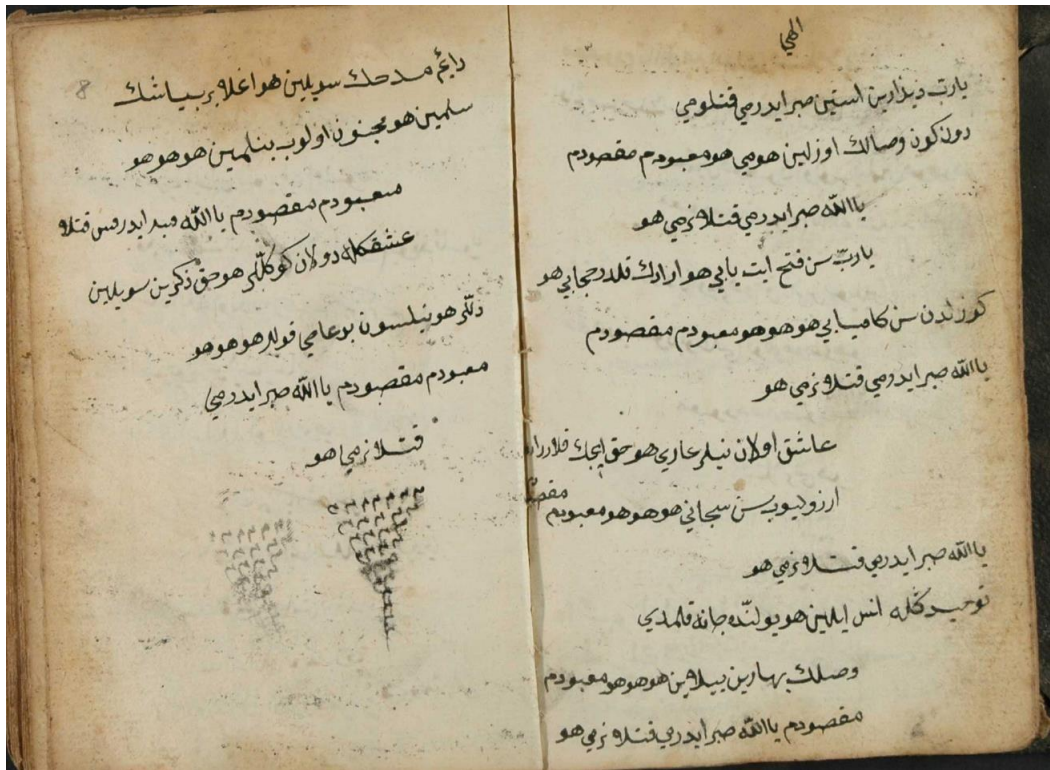 الهي
يارب ديذارين استين صبر ايدرمي قتلومي
دون كون وصالك اوزلين هومي هو معبودم مقصودم
يا الله صبر ايدرمي قتلانرمي هو
يارب سن فتح ايت بابي هو ارادك قلدر حجابي هو
كوزلدن سن كاميابي هو هو هو معبودم مقصودم
يا الله صبر ايدرمي قتلانرمي هو
عاشق اولان نيلر عاري هو حق ايچك
ارزوليوب سن سبحاني هو هو هو معبودم
يا الله صبر ايدرمي قتلانرمي هو
توحيد كله انس ايلين هو يولنده جانه قلمدي
وصلك بهارين ييلاين هو هو هو معبودم
مقصودم يا الله صبر ايدرمي قتلانرمي هو
8
دايم مدحك سويلين هو اغلار بر ياشك
سلمين هو مجنون اولوب بنلمين هو هو هو
معبودم مقصودم يا الله صبر ايدرمي قتلا
عشقكله دولان كوكللر هو حق ذكرين سويلين
دللر هو نيلسون بو عامي قوللر هو هو هو
معبودم مقصودم يا الله صبر ايدرمي
قتلانرمي هو